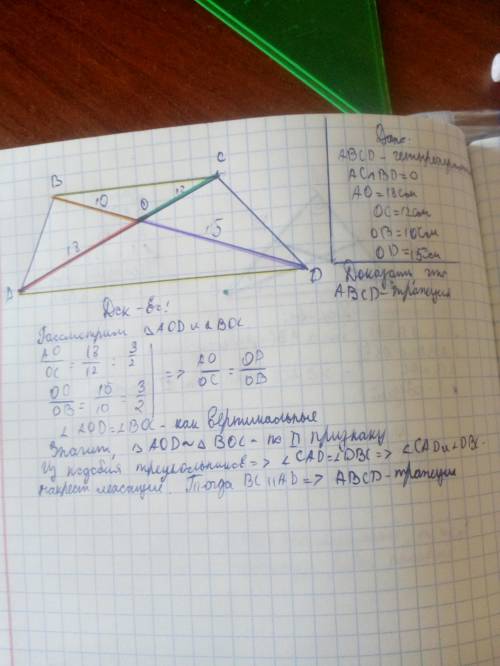 B
C
10
12
O
15
18
A
D
Дано:
ABCD - четырехугольн
AC∩BD=O
AO=18см
OC=12см
OB=10см
OD=15см
Доказать что
ABCD-трапеция
Док-во:
Рассмотрим △AOD и △BOC
AO/OC = 18/12 = 3/2
=> AO/OC = OD/OB
OD/OB = 15/10 = 3/2
∠AOD=∠BOC - как вертикальные
Значит, △AOD∼△BOC - по II признаку
Из подобия треугольников => ∠CAD=∠DBC => ∠CAD и ∠DBC
накрест лежащие. Тогда BC||AD => ABCD-трапеция